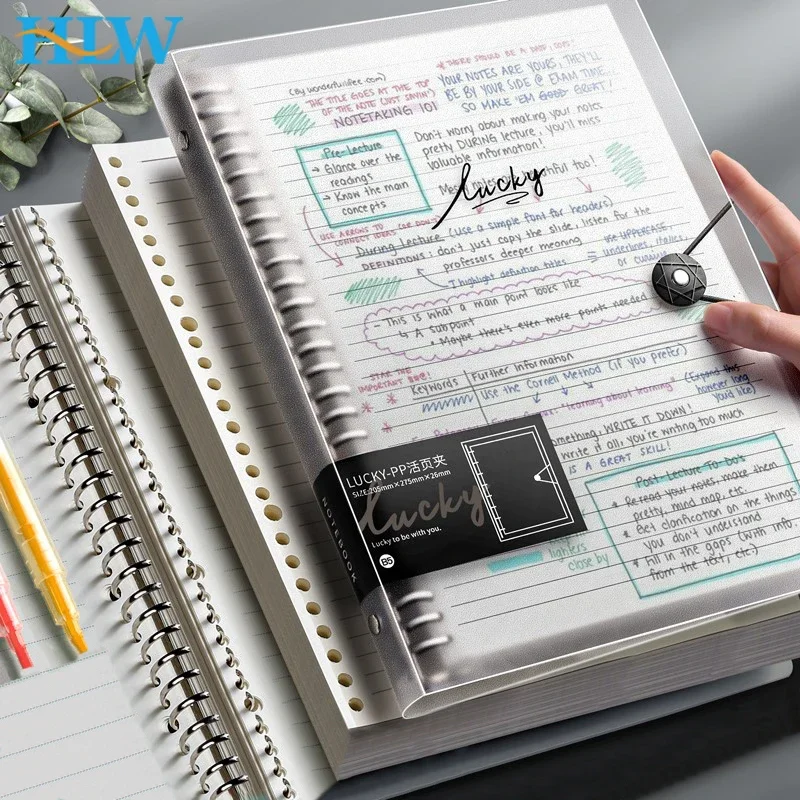 HLW
(By wonderfullifee.com)
THE TITLE GOES AT THE TOP
OF THE NOTE (JUST SAYIN')
NOTETAKING 101
* THERE SHOULD BE A
YOUR NOTES ARE YOURS, THEY'LL
BE BY YOUR SIDE @ EXAM TIME
SO MAKE 'EM GOOD GREAT!
Don't worry about making your notes
pretty DURING lecture, you'll miss
valuable information!
too!
lucky
Pre-Lecture
→ Glance over the
readings
→ Know the main
concepts
USE ARROWS TO
CONNECT IDEAS (OR DON'T)
During Lecture (use a simple font for headers)
DEFINITIONS: don't just copy the slide, listen for the
professors deeper meaning
highlight definition titles
= use UPPERCASE,
underlines, italics
or cursive
This is what a main point looks like
↳ A subpoint
• Maybe there's even more points needed
STAR THE
IMPORTANT
Keywords
Further Information
Use the Cornell Method (if you prefer)
"learning about learning"
(Expand this
however long
you'd like)
WRITE IT DOWN!
Write it all, you're writing too much
IS A GREAT SKILL!
Post-Lecture To-Do's
• Re-read your notes, make them
pretty, mind map, etc.
• Get clarification on the things
you don't understand
• Fill in the gaps (with info.
from the text, etc.)
lighters
close by
NOTEBOOK
LUCKY-PP活页夹
SIZE:205mm×275mm×26mm
lucky
Lucky to be with you.
B5